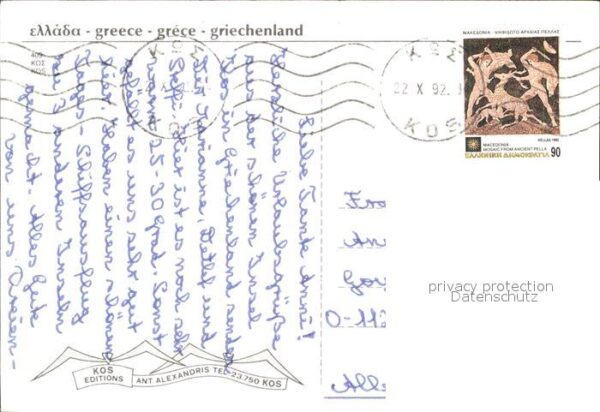 ελλάδα - greece - grèce - griechenland
409
ΚΟΣ
KOS
ΚΩΣ
22 X 92.
KOS
ΜΑΚΕΔΟΝΙΑ - ΨΗΦΙΔΩΤΟ ΑΡΧΑΙΑΣ ΠΕΛΛΑΣ
HELLAS 1992
MACEDONIA
MOSAIC FROM ANCIENT PELLA
ΕΛΛΗΝΙΚΗ ΔΗΜΟΚΡΑΤΙΑ 90
Liebe Tante Anni!
Herzliche Urlaubsgrüße
aus der schönen Insel
Kos in Griechenland senden
Dir Marianne, Detlef und
Hier ist es noch sehr
warm 25-30 Grad. Sonst
gefällt es uns sehr gut
hier. Haben einen schönen
Tages-Schiffsausflug
zu 3 anderen Inseln
gemacht. Alles Gute
von uns Dreien-
Fra
An
Gar
O-113
All
privacy protection
Datenschutz
KOS
EDITIONS
ANT ALEXANDRIS TEL. 23.750 KOS